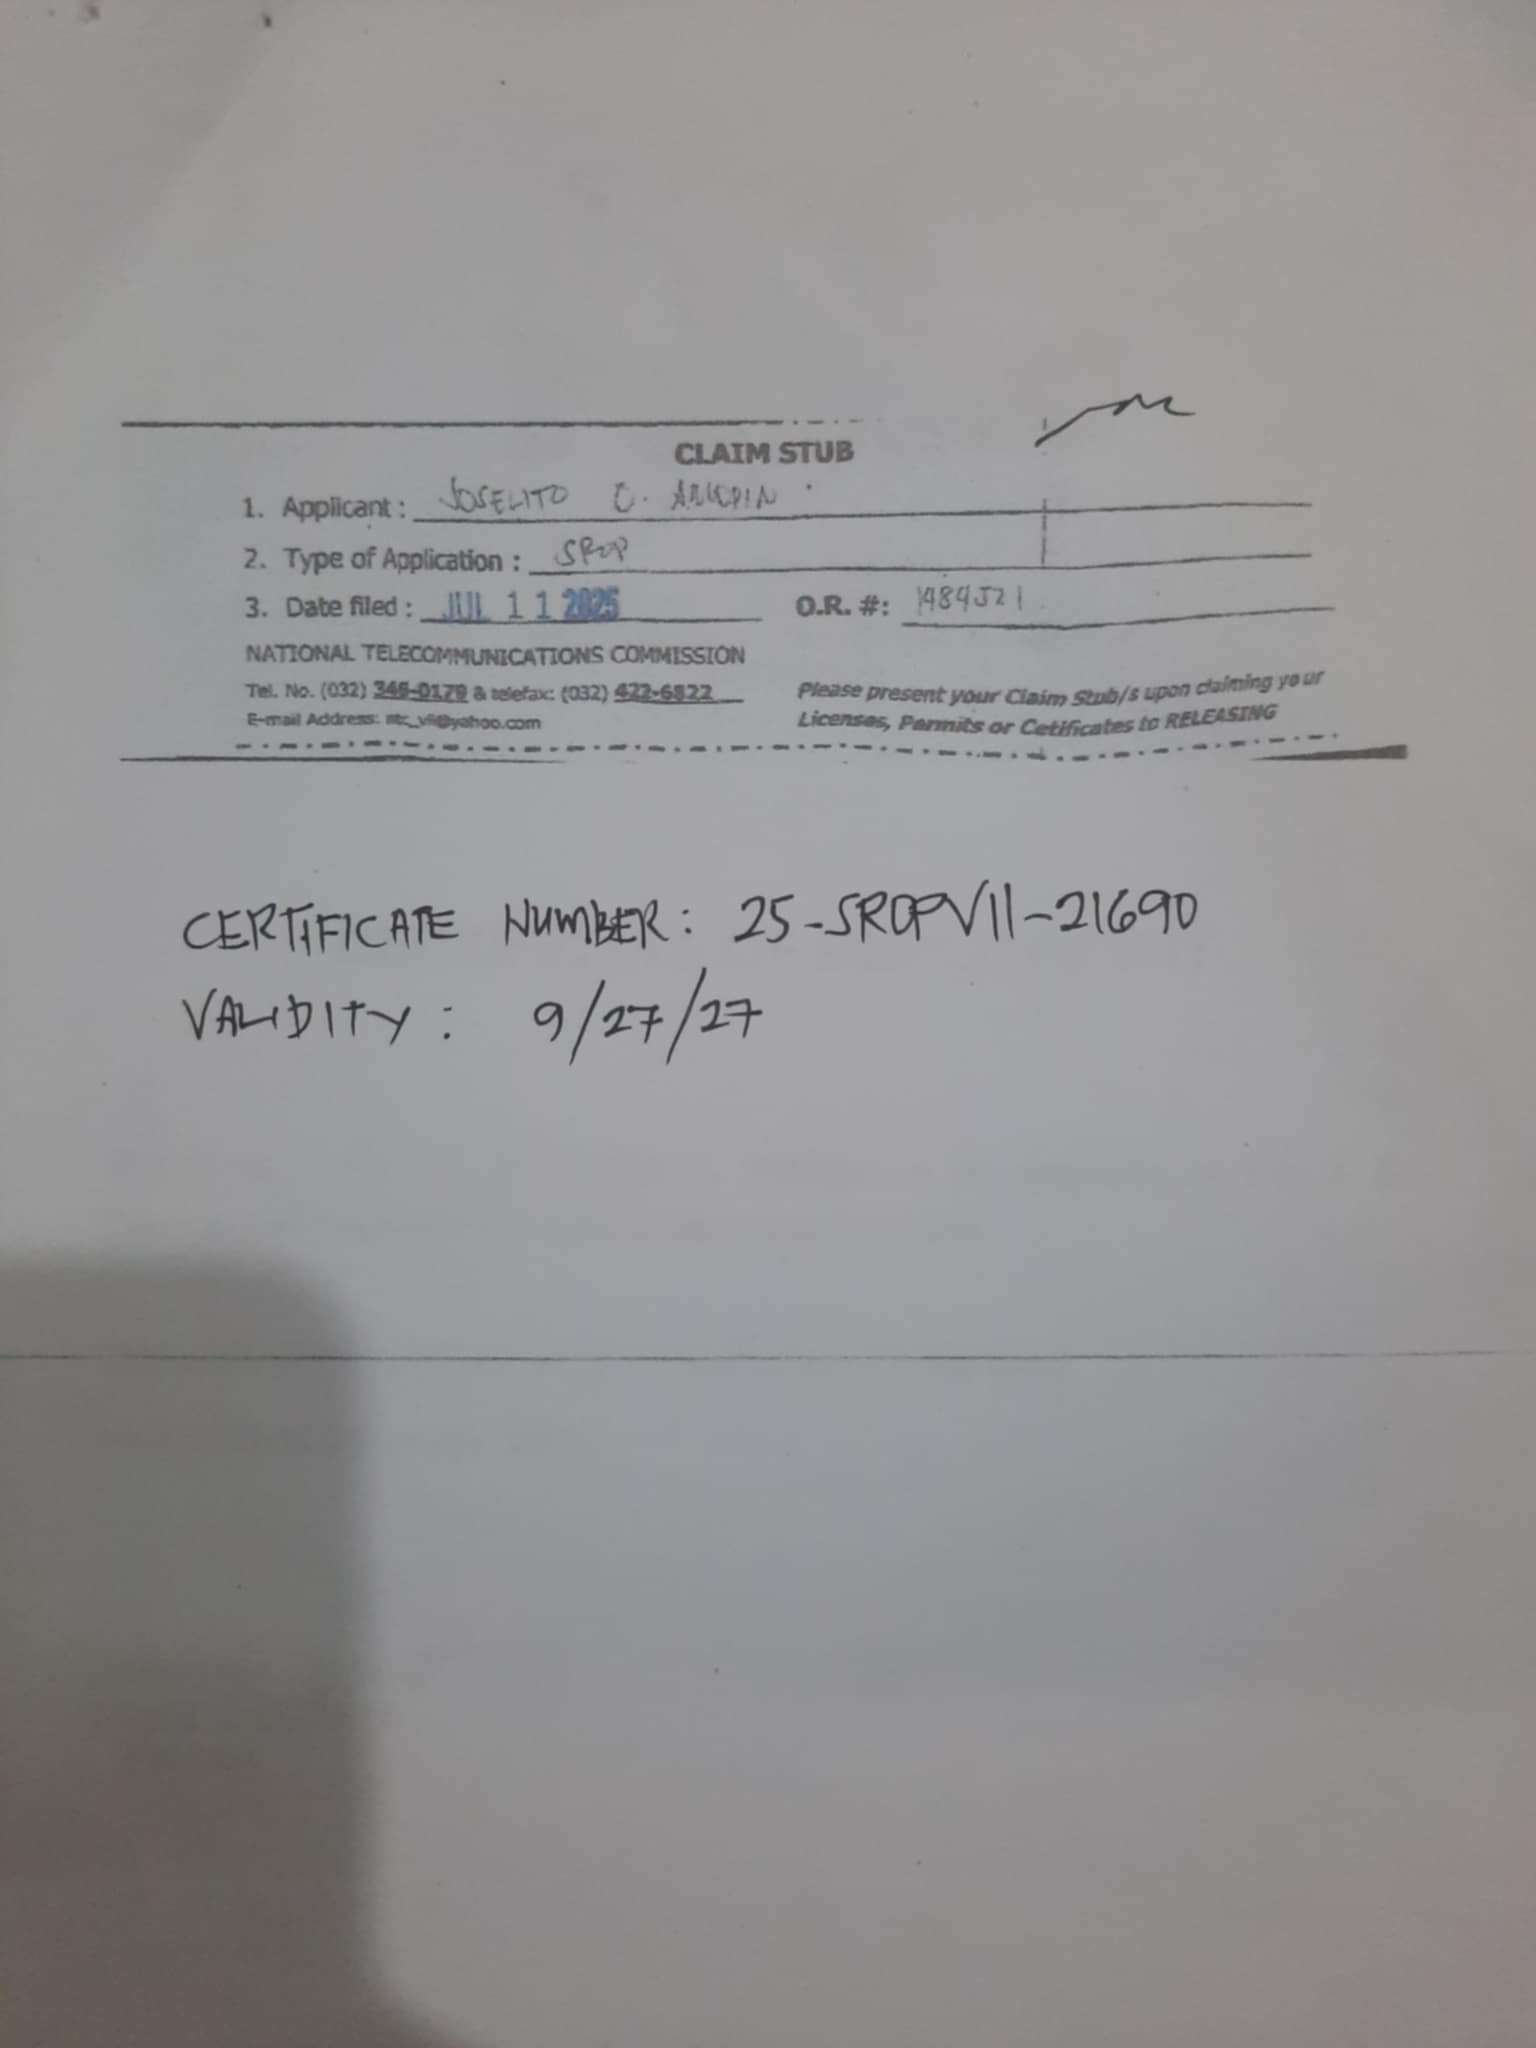 CLAIM STUB
1. Applicant : JOSELITO C.
2. Type of Application : SROP
3. Date filed : JUL 11 2025 O.R. #: 1484521
NATIONAL TELECOMMUNICATIONS COMMISSION
Tel. No. (032) 345-0179 & telefax: (032) 422-6822
E-mail Address: ntc_vii@yahoo.com
Please present your Claim Stub/s upon claiming your
Licenses, Permits or Cetificates to RELEASING
CERTIFICATE NUMBER: 25-SROPVII-21690
VALIDITY: 9/27/27